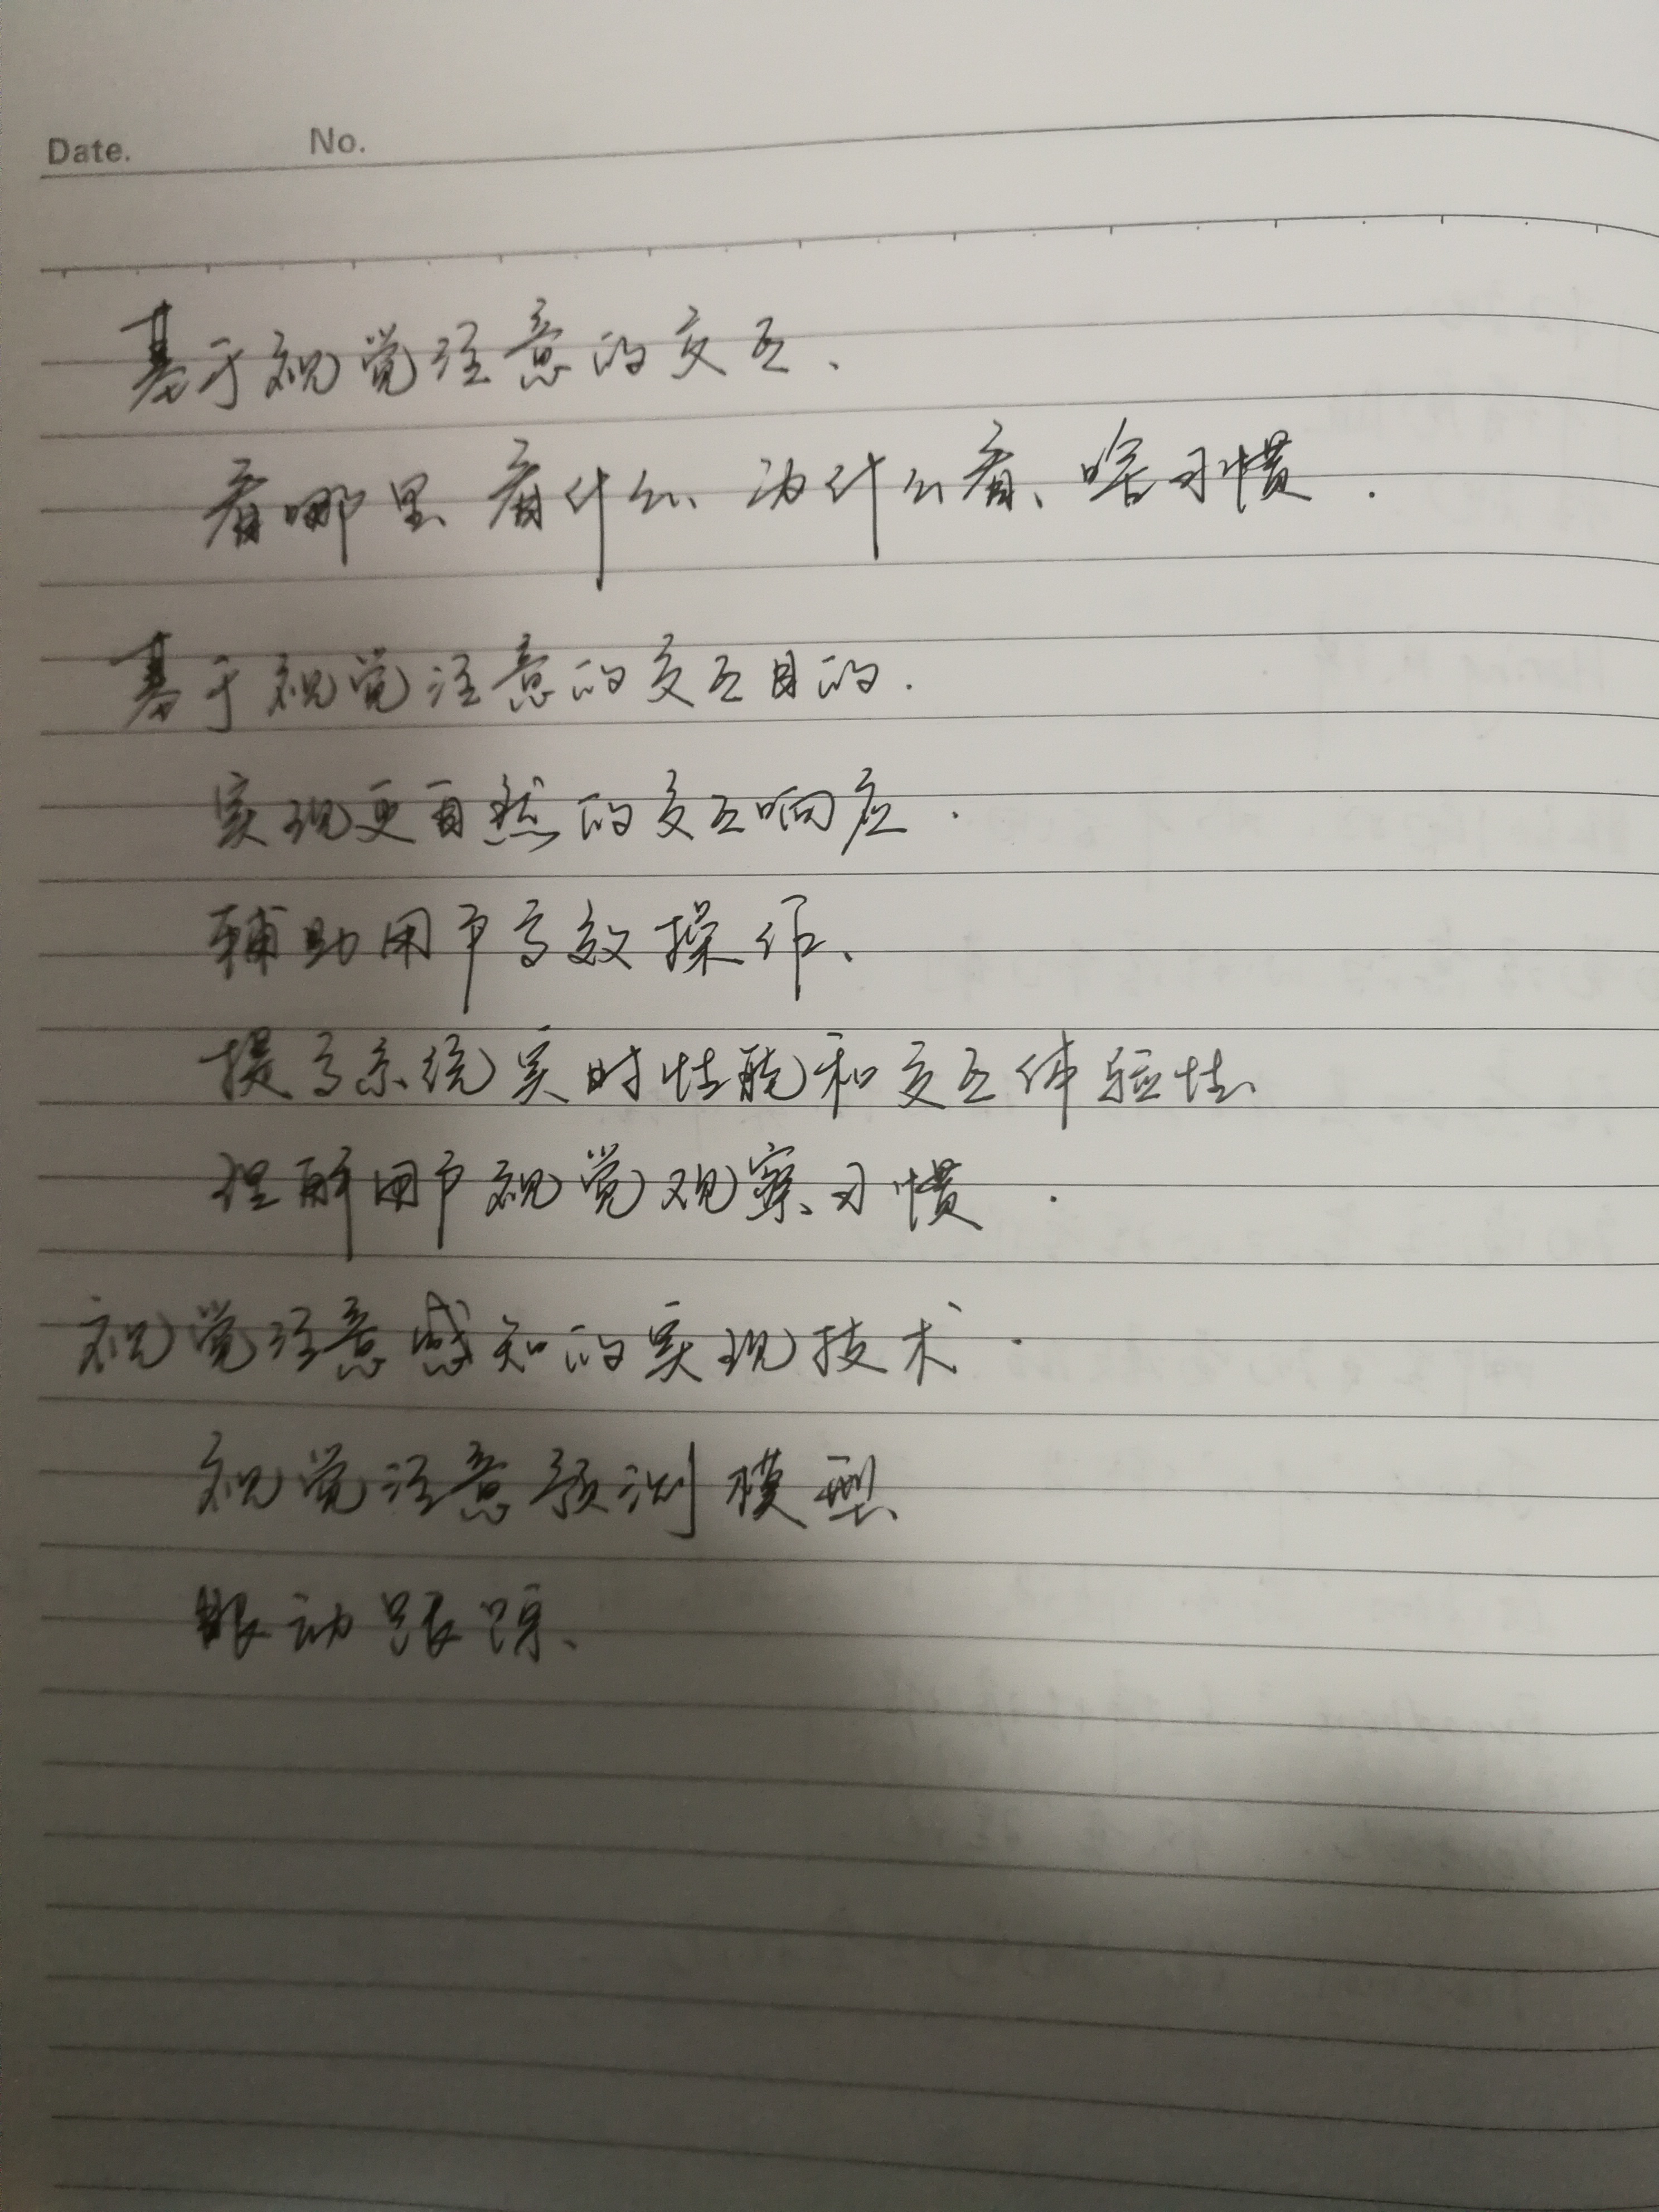 Date. No.
基于视觉注意的交互、
看哪里、看什么、为什么看、啥习惯.
基于视觉注意的交互目的.
实现更自然的交互响应.
辅助用户高效操作、
提高系统实时性能和交互体验性、
理解用户视觉观察习惯.
视觉注意感知的实现技术.
视觉注意预测模型
眼动跟踪、